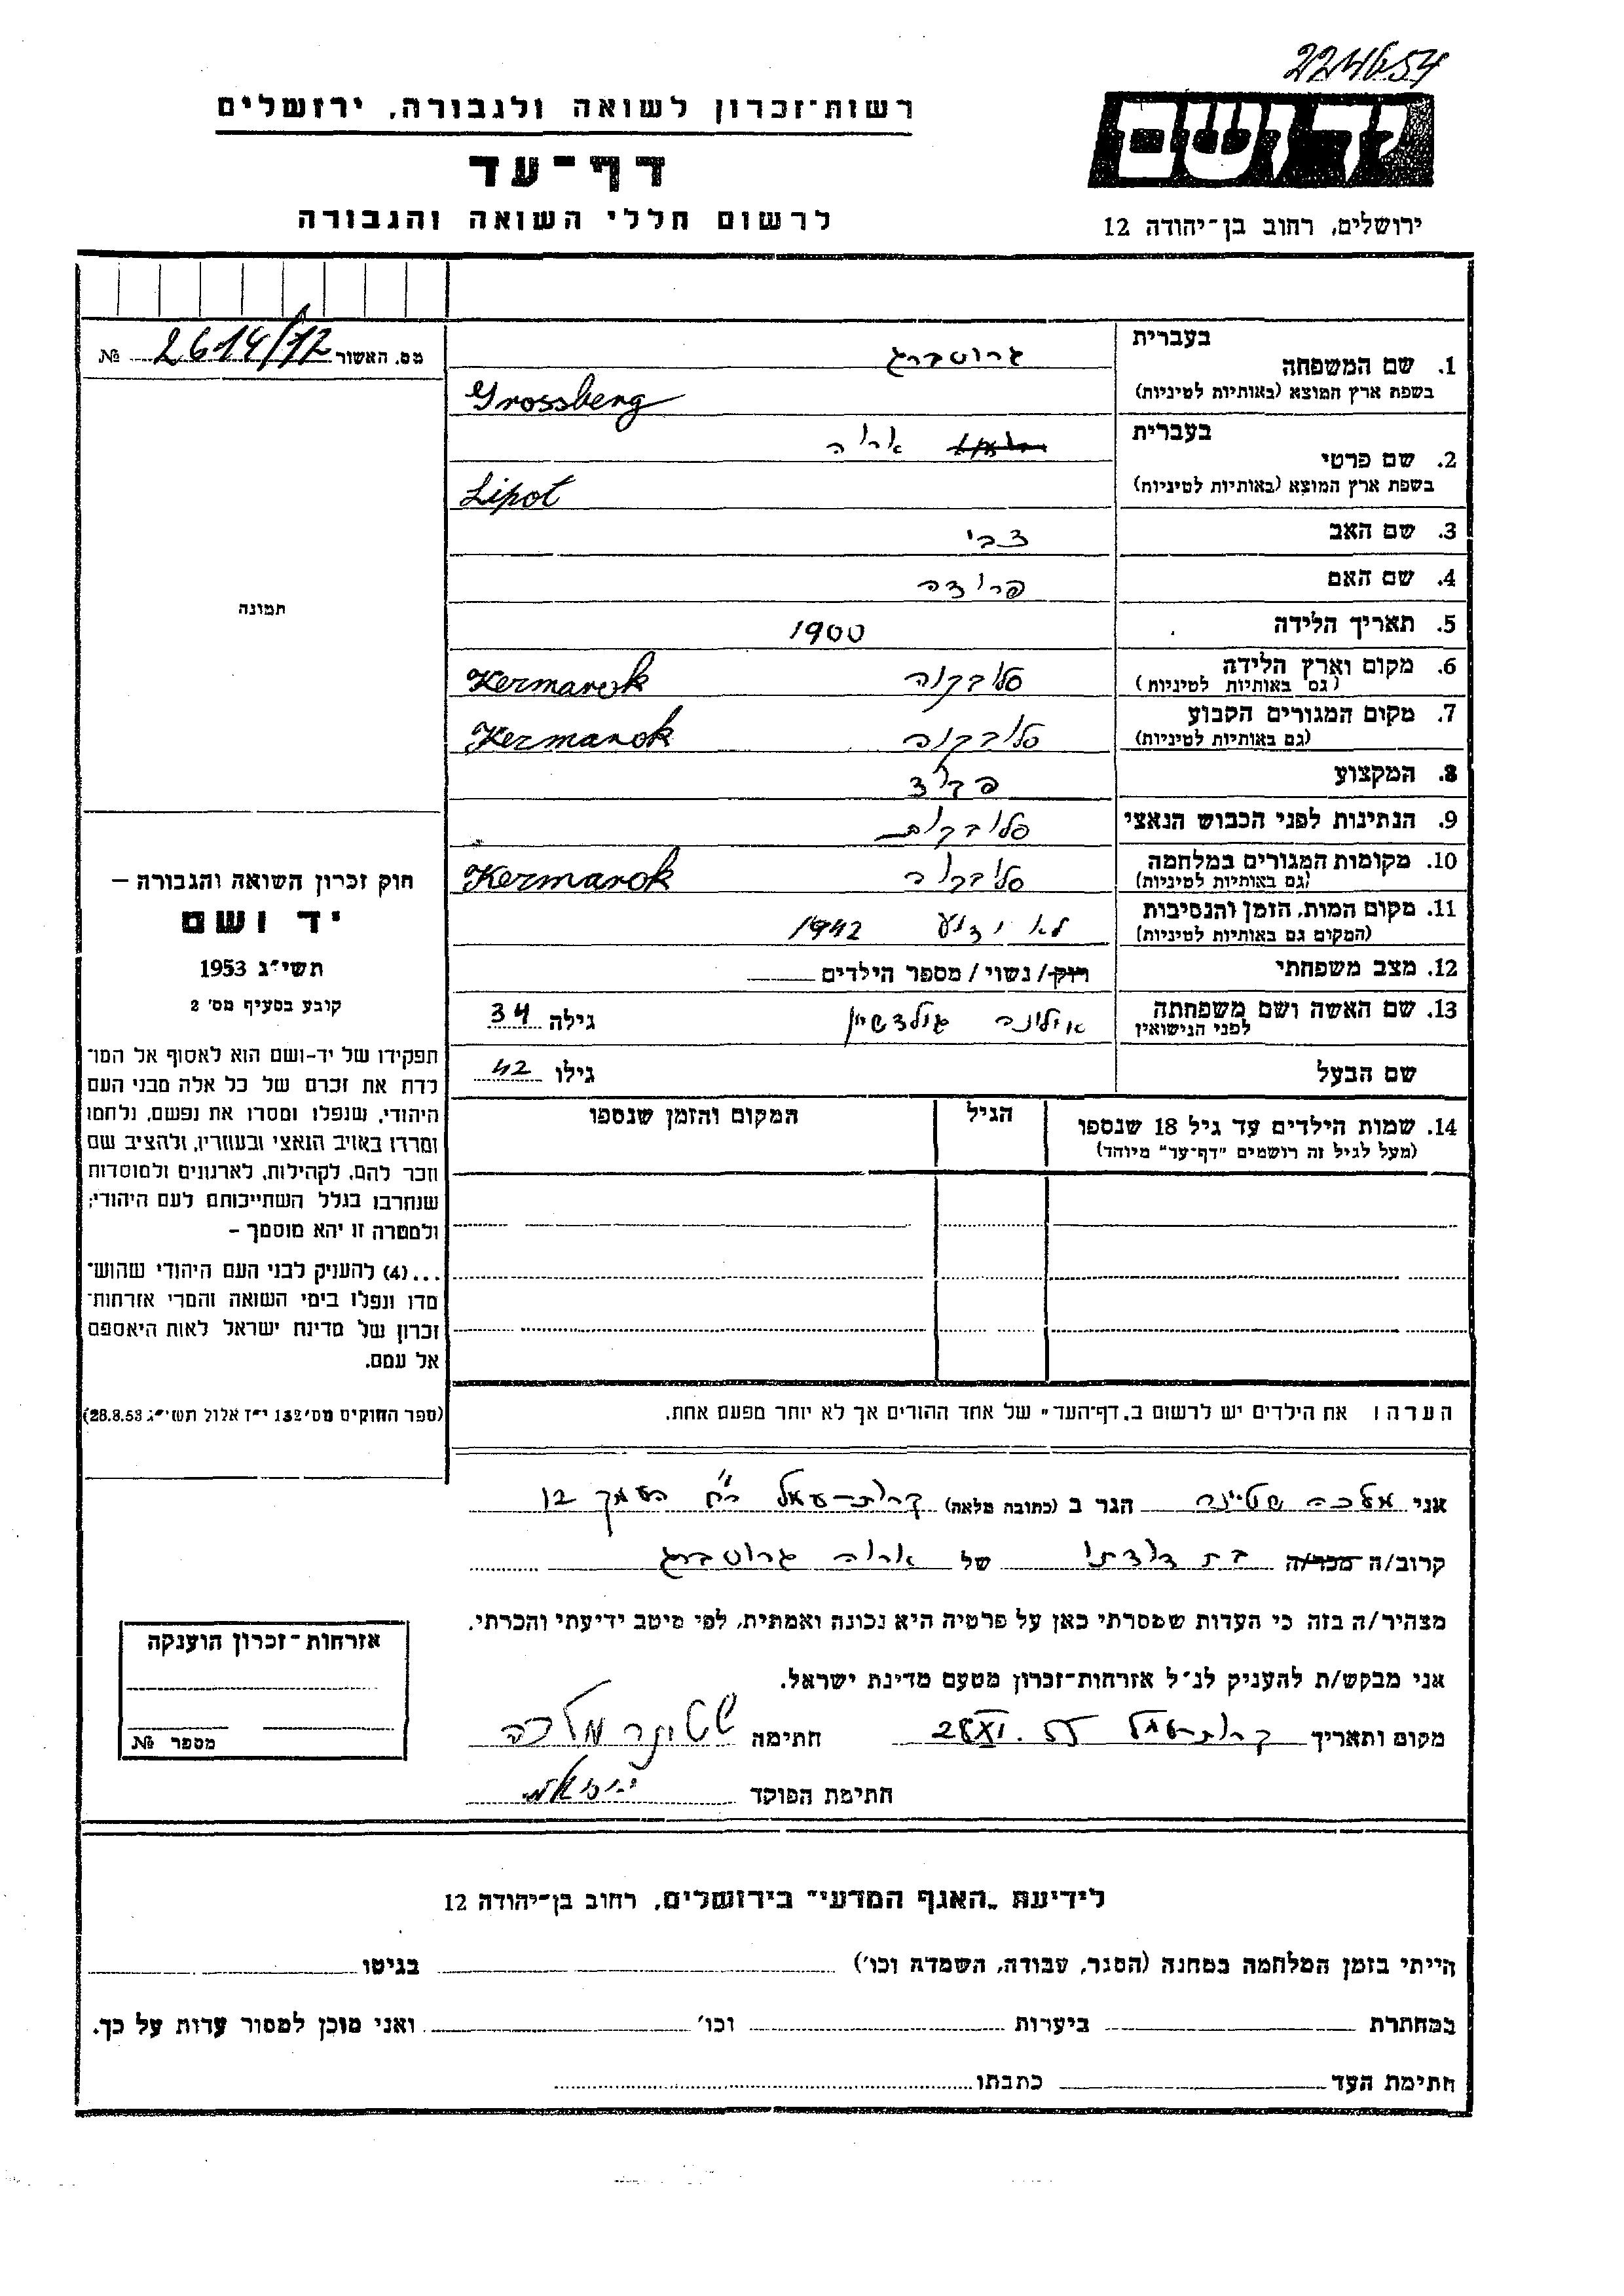 224654
רשות-זכרון לשואה ולגבורה, ירושלים
יד ושם
דף-עד
לרשום חללי השואה והגבורה
ירושלים, רחוב בן-יהודה 12
מס. האשור 2614/72 №
בעברית
1. שם המשפחה גרוסברג
בשפת ארץ המוצא (באותיות לטיניות) Grossberg
בעברית
2. שם פרטי אריה
בשפת ארץ המוצא (באותיות לטיניות) Lipot
3. שם האב צבי
4. שם האם פרידה
5. תאריך הלידה 1900
6. מקום וארץ הלידה סלובקיה Kezmarok
(גם באותיות לטיניות)
7. מקום המגורים הקבוע סלובקיה Kezmarok
(גם באותיות לטיניות)
8. המקצוע פקיד
9. הנתינות לפני הכבוש הנאצי סלובקית
10. מקומות המגורים במלחמה סלובקיה Kezmarok
(גם באותיות לטיניות)
11. מקום המות, הזמן והנסיבות לא ידוע 1942
(המקום גם באותיות לטיניות)
12. מצב משפחתי רווק/ נשוי / מספר הילדים
13. שם האשה ושם משפחתה אילונה גולדשיין גילה 34
לפני הנישואין
שם הבעל גילו 42
14. שמות הילדים עד גיל 18 שנספו הגיל המקום והזמן שנספו
(מעל לגיל זה רושמים "דף-עד" מיוחד)
הערה: את הילדים יש לרשום ב„דף-העד" של אחד ההורים אך לא יותר מפעם אחת.
תמונה
חוק זכרון השואה והגבורה –
יד ושם
תשי"ג 1953
קובע בסעיף מס' 2
תפקידו של יד-ושם הוא לאסוף אל המו־
לדת את זכרם של כל אלה מבני העם
היהודי, שנפלו ומסרו את נפשם, נלחמו
ומרדו באויב הנאצי ובעוזריו, ולהציב שם
וזכר להם, לקהילות, לארגונים ולמוסדות
שנחרבו בגלל השתייכותם לעם היהודי;
ולמטרה זו יהא מוסמך –
...(4) להעניק לבני העם היהודי שהוש־
מדו ונפלו בימי השואה והמרי אזרחות־
זכרון של מדינת ישראל לאות היאספם
אל עמם.
(ספר החוקים מס' 132 י"ז אלול תשי"ג 28.8.53)
אני מלכה שטיינר הגר ב (כתובת מלאה) קרית-עמל רח' העמק 12
קרוב/ה מכר/ה בת דודתי של אריה גרוסברג
מצהיר/ה בזה כי העדות שמסרתי כאן על פרטיה היא נכונה ואמתית, לפי מיטב ידיעתי והכרתי.
אני מבקש/ת להעניק לנ"ל אזרחות-זכרון מטעם מדינת ישראל.
מקום ותאריך קרית-עמל 28.XI.55 חתימה שטיינר מלכה
חתימת הפוקד
אזרחות-זכרון הוענקה
מספר №
לידיעת „האגף המדעי" בירושלים, רחוב בן-יהודה 12
הייתי בזמן המלחמה במחנה (הסגר, עבודה, השמדה וכו') בגיטו
במחתרת ביערות וכו' ואני מוכן למסור עדות על כך.
חתימת העד כתבתו